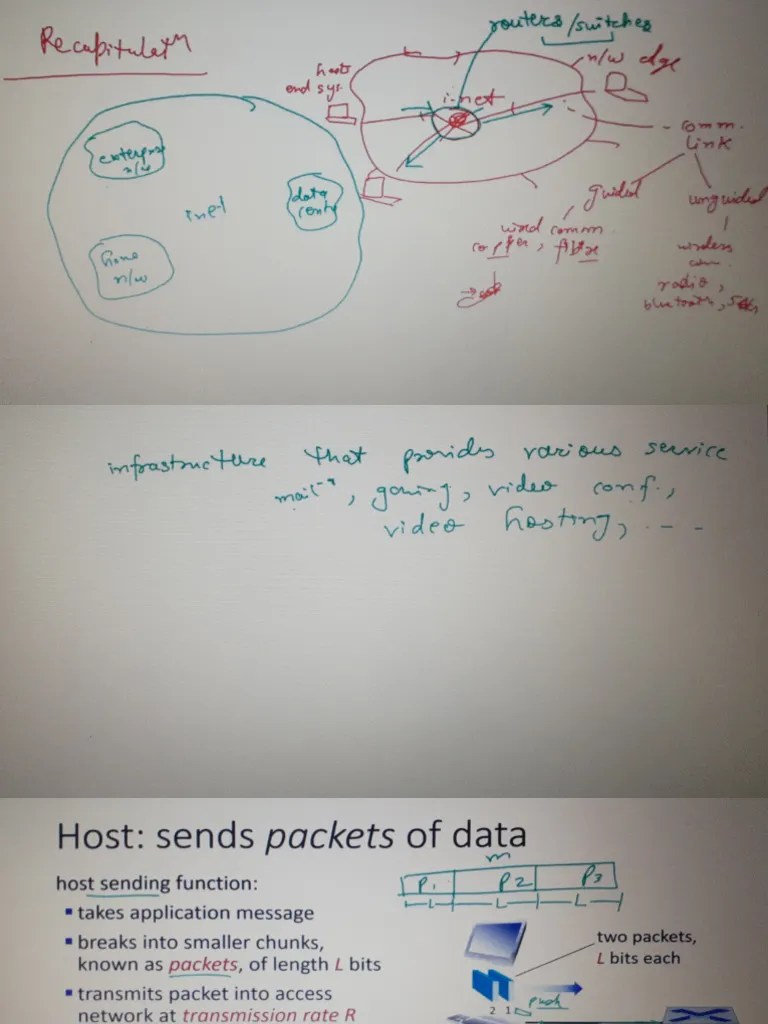 Recapitulatn
routers/switches
n/w edge
hosts
end sys.
i-net
comm.
link
enterprise
n/w
data
cent
inet
home
n/w
guided
unguided
wired comm
copper, fibre
wireless
radio,
bluetooth,
infrastructure that provides various service
mail, gaming, video conf.,
video hosting, ...
Host: sends packets of data
m
P1 P2 P3
L L L
host sending function:
▪ takes application message
▪ breaks into smaller chunks,
known as packets, of length L bits
▪ transmits packet into access
network at transmission rate R
two packets,
L bits each
push
2 1